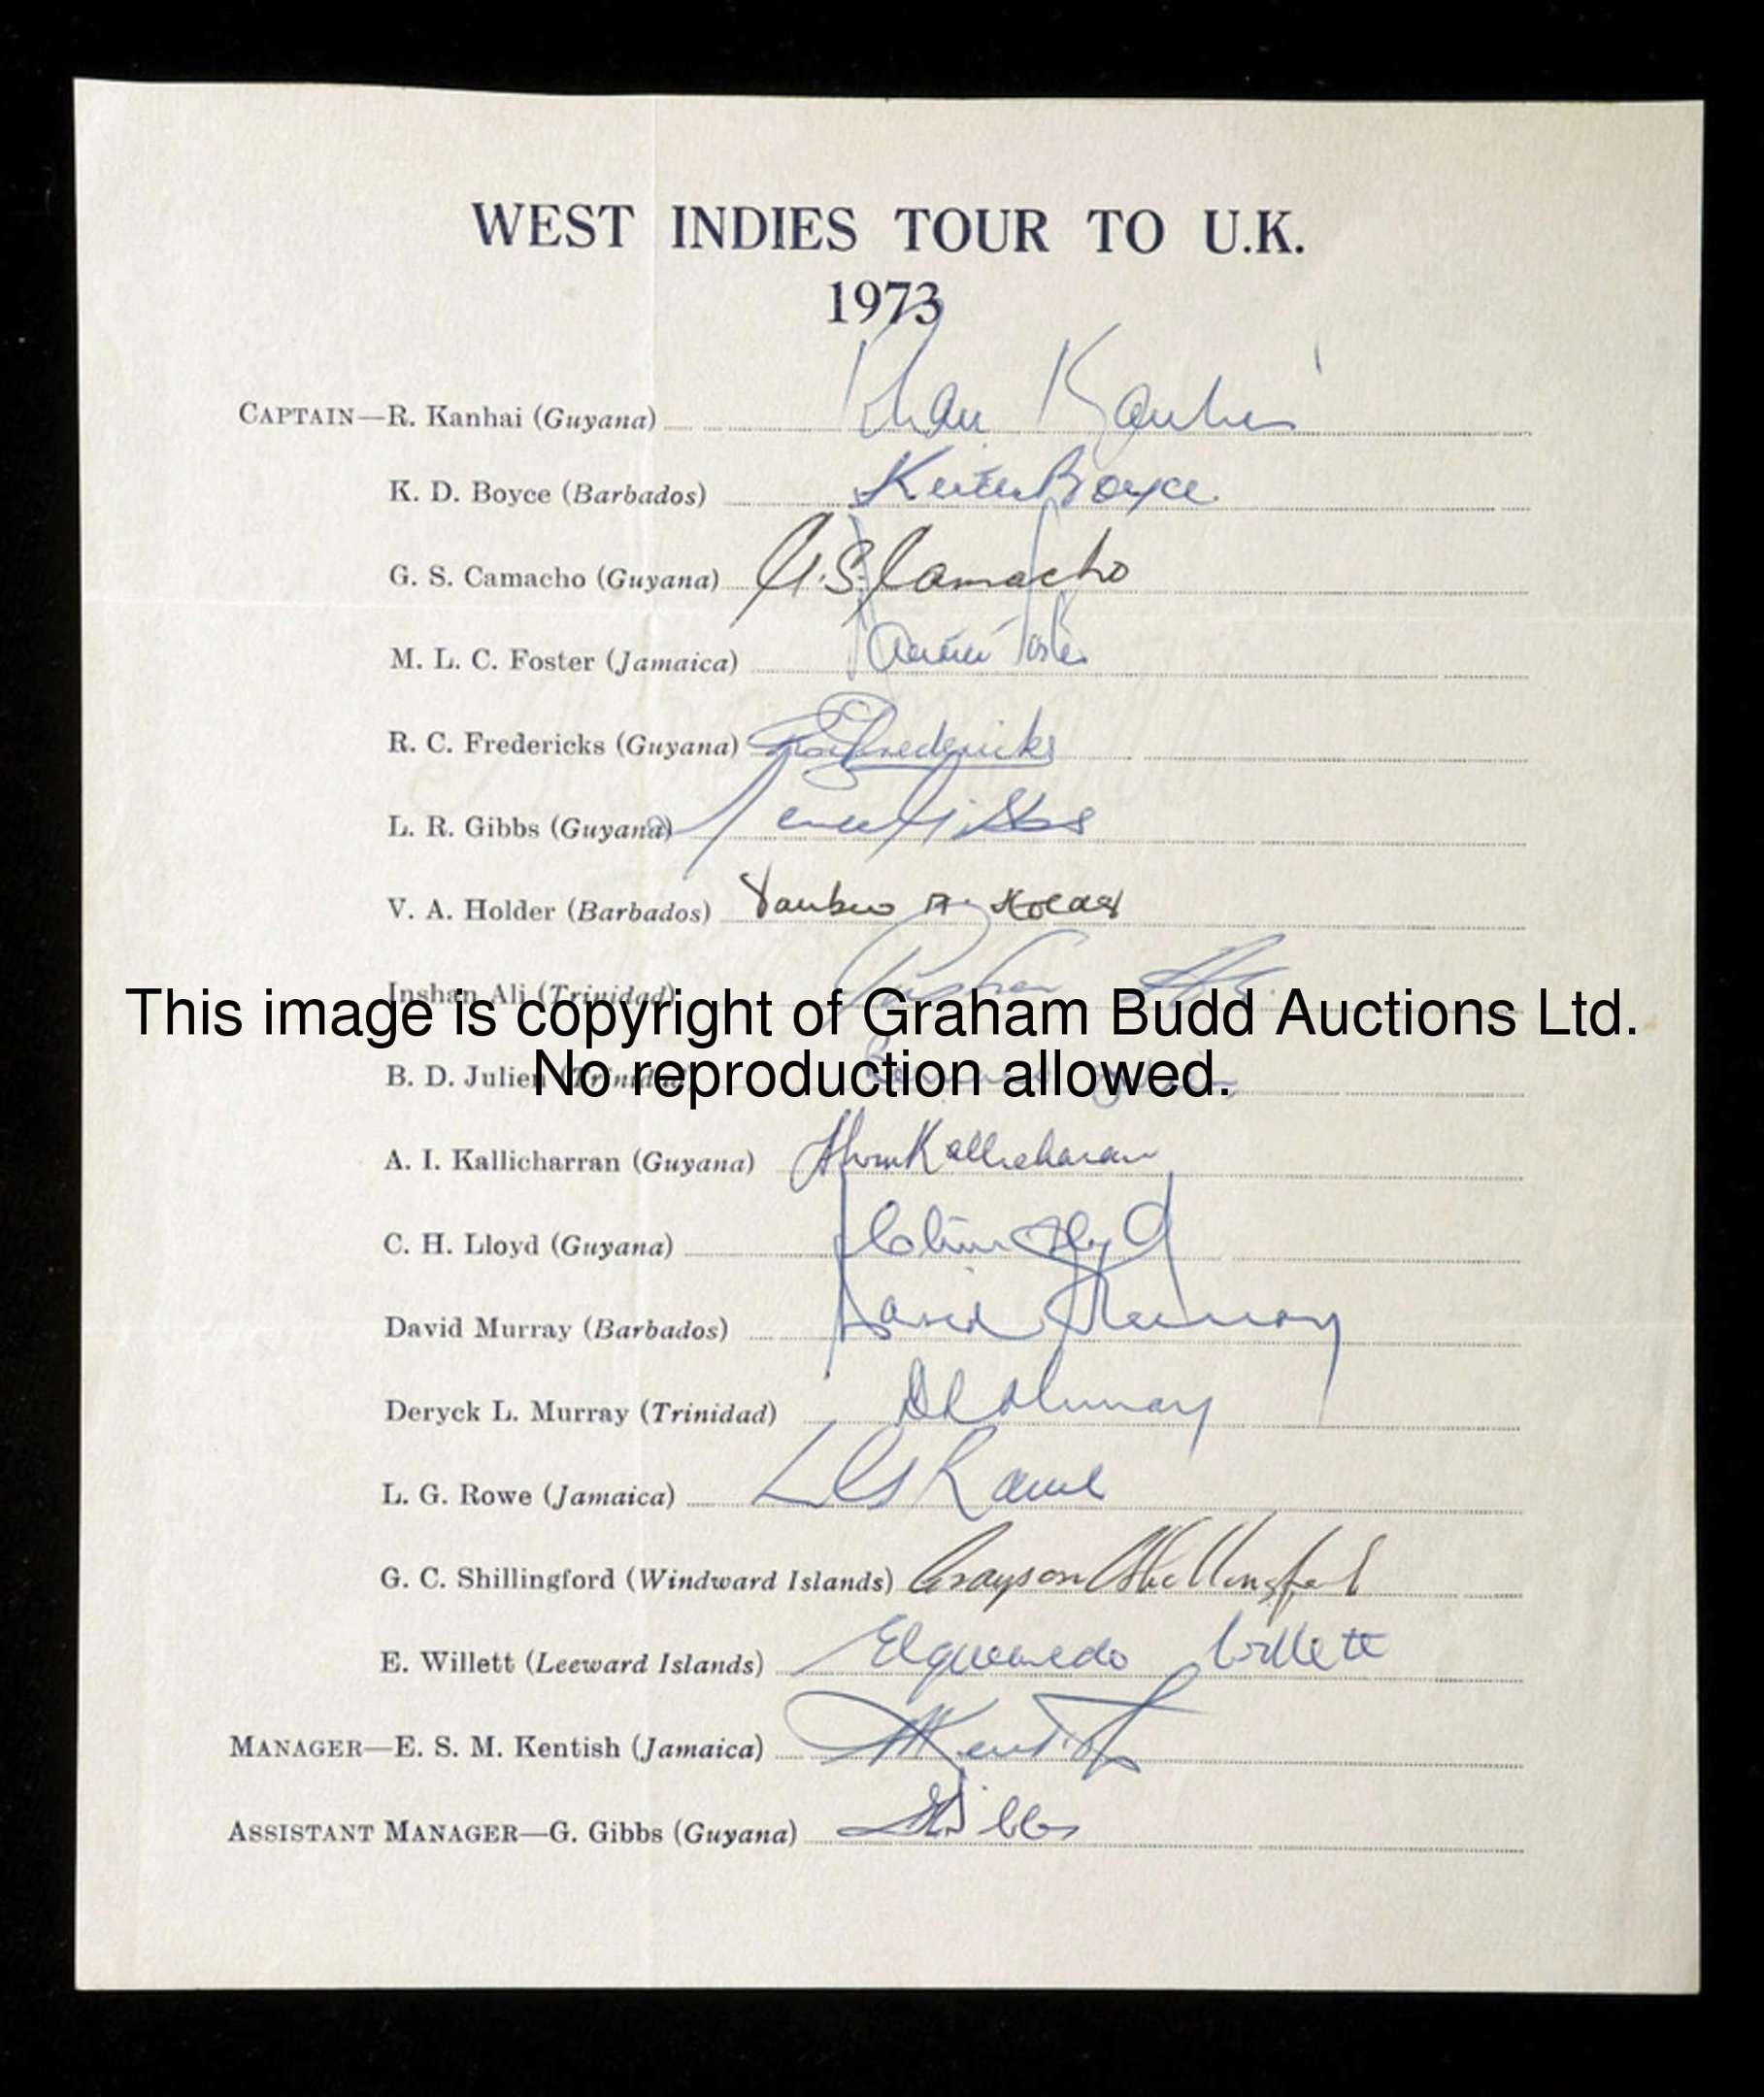 WEST INDIES TOUR TO U.K.
1973
CAPTAIN—R. Kanhai (Guyana) Rohan Kanhai
K. D. Boyce (Barbados) Keith Boyce
G. S. Camacho (Guyana) G.S. Camacho
M. L. C. Foster (Jamaica) Maurice Foster
R. C. Fredericks (Guyana) Roy Fredericks
L. R. Gibbs (Guyana) Lance Gibbs
V. A. Holder (Barbados) Vanburn A. Holder
Inshan Ali (Trinidad) Inshan Ali
This image is copyright of Graham Budd Auctions Ltd.
B. D. Julien (Trinidad)
No reproduction allowed.
A. I. Kallicharran (Guyana) Alvin Kallicharan
C. H. Lloyd (Guyana) Clive Lloyd
David Murray (Barbados) David Murray
Deryck L. Murray (Trinidad) D L Murray
L. G. Rowe (Jamaica) L G Rowe
G. C. Shillingford (Windward Islands) Grayson Shillingford
E. Willett (Leeward Islands) Elquemedo Willett
MANAGER—E. S. M. Kentish (Jamaica) Kentish
ASSISTANT MANAGER—G. Gibbs (Guyana) G Gibbs